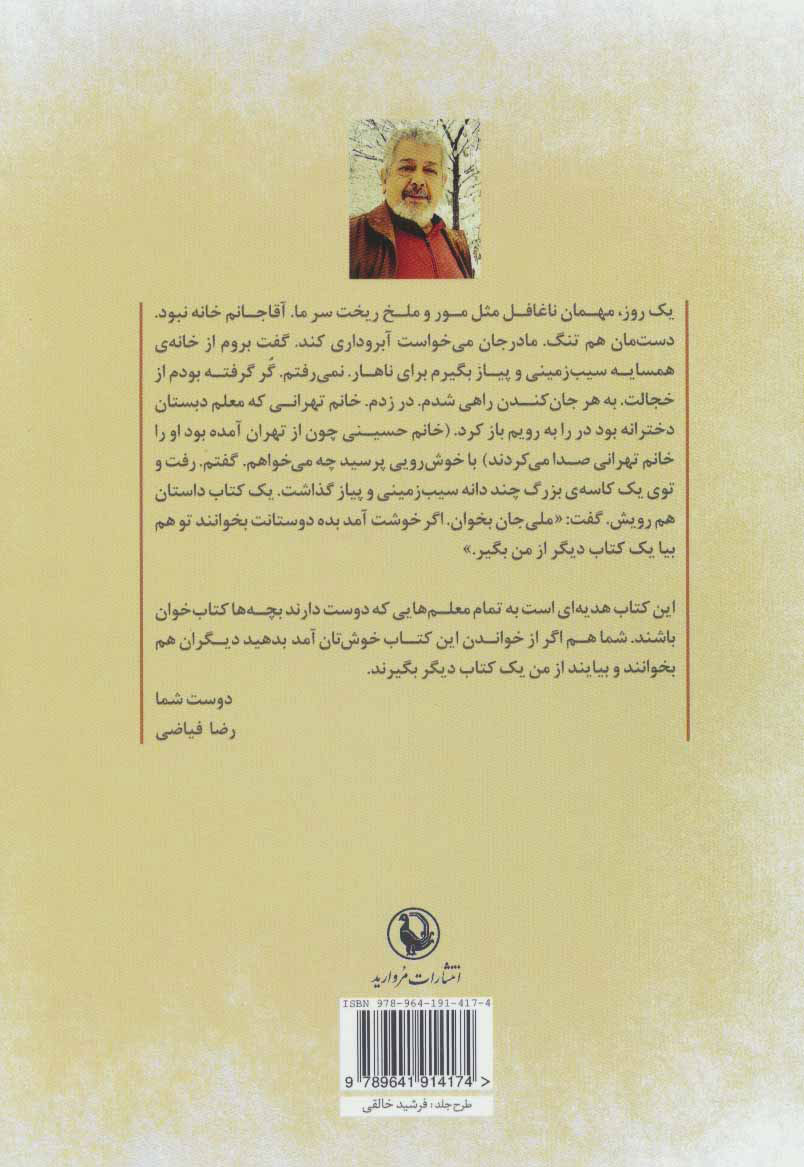 یک روز، مهمان ناغافل مثل مور و ملخ ریخت سر ما. آقاجانم خانه نبود.
دست‌مان هم تنگ. مادرجان می‌خواست آبروداری کند. گفت بروم از خانه‌ی
همسایه سیب‌زمینی و پیاز بگیرم برای ناهار. نمی‌رفتم. گُر گرفته بودم از
خجالت. به هر جان‌کندن راهی شدم. در زدم. خانم تهرانی که معلم دبستان
دخترانه بود در را به رویم باز کرد. (خانم حسینی چون از تهران آمده بود او را
خانم تهرانی صدا می‌کردند) با خوش‌رویی پرسید چه می‌خواهم. گفتم. رفت و
توی یک کاسه‌ی بزرگ چند دانه سیب‌زمینی و پیاز گذاشت. یک کتاب داستان
هم رویش. گفت: «ملی‌جان بخوان. اگر خوشت آمد بده دوستانت بخوانند تو هم
بیا یک کتاب دیگر از من بگیر.»
این کتاب هدیه‌ای است به تمام معلم‌هایی که دوست دارند بچه‌ها کتاب‌خوان
باشند. شما هم اگر از خواندن این کتاب خوش‌تان آمد بدهید دیگران هم
بخوانند و بیایند از من یک کتاب دیگر بگیرند.
دوست شما
رضا فیاضی
انتشارات مُروارید
ISBN 978-964-191-417-4
9 789641 914174 >
طرح جلد: فرشید خالقی